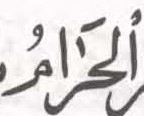 ٱلْحَرَامُ